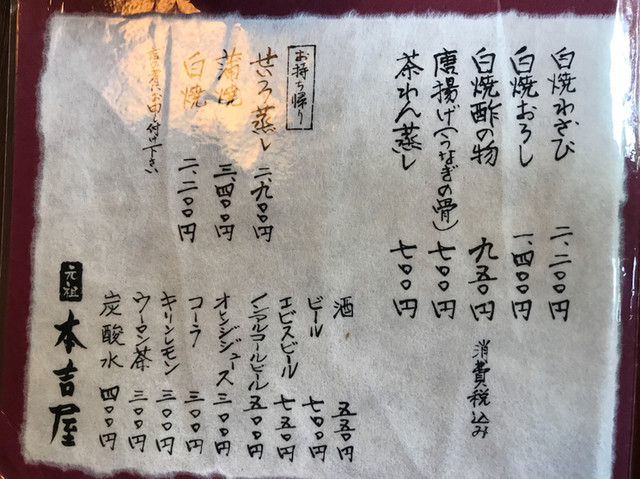 白焼わさび 二、二〇〇円
白焼おろし 一、四〇〇円
白焼酢の物 九五〇円
唐揚げ(うなぎの骨) 七〇〇円
茶わん蒸し 七〇〇円
消費税込み
お持ち帰り
せいろ蒸し 二、九〇〇円
蒲焼 三、四〇〇円
白焼 二、二〇〇円
お申し付け下さい
酒 五五〇円
ビール 七〇〇円
エビスビール 七五〇円
ノンアルコールビール 五〇〇円
オレンジジュース 三〇〇円
コーラ 三〇〇円
キリンレモン 三〇〇円
ウーロン茶 三〇〇円
炭酸水 四〇〇円
元祖
本吉屋